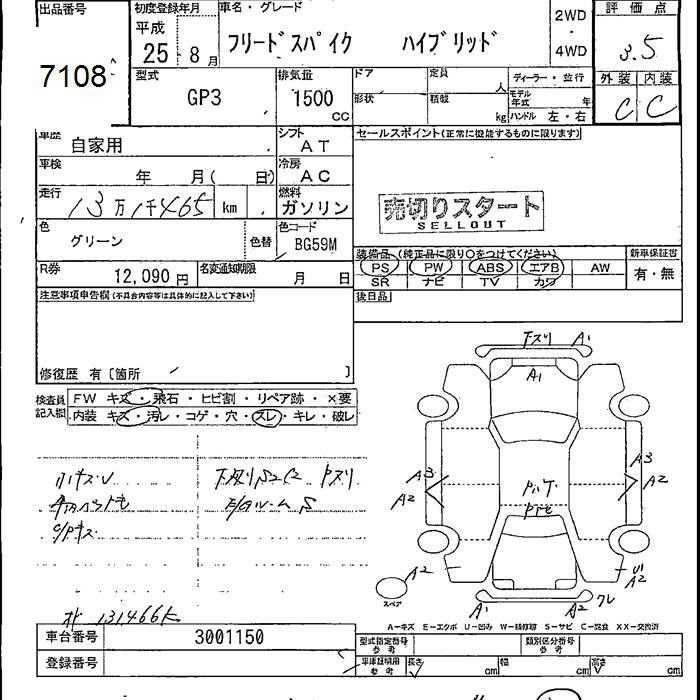 出品番号
7108
初度登録年月
平成
25 - 8 月
車名・グレード
フリードスパイク ハイブリッド
2WD
4WD
評価点
3.5
型式
GP3
排気量
1500
CC
ドア
定員
人
形状
積載
kg
ディーラー・並行
モデル年式
年
ハンドル 左・右
外装 内装
C C
車歴
自家用
シフト
AT
車検
年 月( 日)
冷房
AC
走行
13万1千465 km
燃料
ガソリン
色
グリーン
色替
色コード
BG59M
R券
12,090 円
名変通知期限
月 日
セールスポイント(正常に機能するものに限ります)
売切りスタート
SELLOUT
装備品 (純正品に限り○をつけてください)
PS PW ABS エアB AW
SR ナビ TV カワ
新車保証書
有・無
後日品
注意事項申告欄(不具合内容等は具体的に記入して下さい)
修復歴 有〔箇所 〕
検査員記入欄
FW キズ・飛石・ヒビ割・リペア跡・×要
内装 キズ・汚レ・コゲ・穴・スレ・キレ・破レ
下スリ A1
A1
A3
A2
A3
A2
A2
U1
A2
A1
A2
ワレ
スペア
A−キズ E−エクボ U−凹み W−補修跡 S−サビ C−腐食 XX−交換済
131466K
車台番号
3001150
登録番号
型式指定番号
参考
類別区分番号
参考
車庫証明用
参考
長さ
cm
幅
cm
高さ
cm